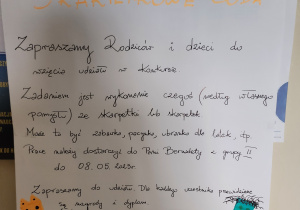 SKARPETKOWE
Zapraszamy Rodziców i dzieci do
wzięcia udziału w konkursie
Zadaniem jest wykonanie czegoś (według własnego
pomysłu) ze skarpetki lub skarpetek
Może to być zabawka, pacynka, ubranko dla lalek, itp.
Prace należy dostarczyć do Pani Bernadety z grupy II
do 08.05.
Zapraszamy do udziału. Dla każdego uczestnika przewidziane
są nagrody i dyplom